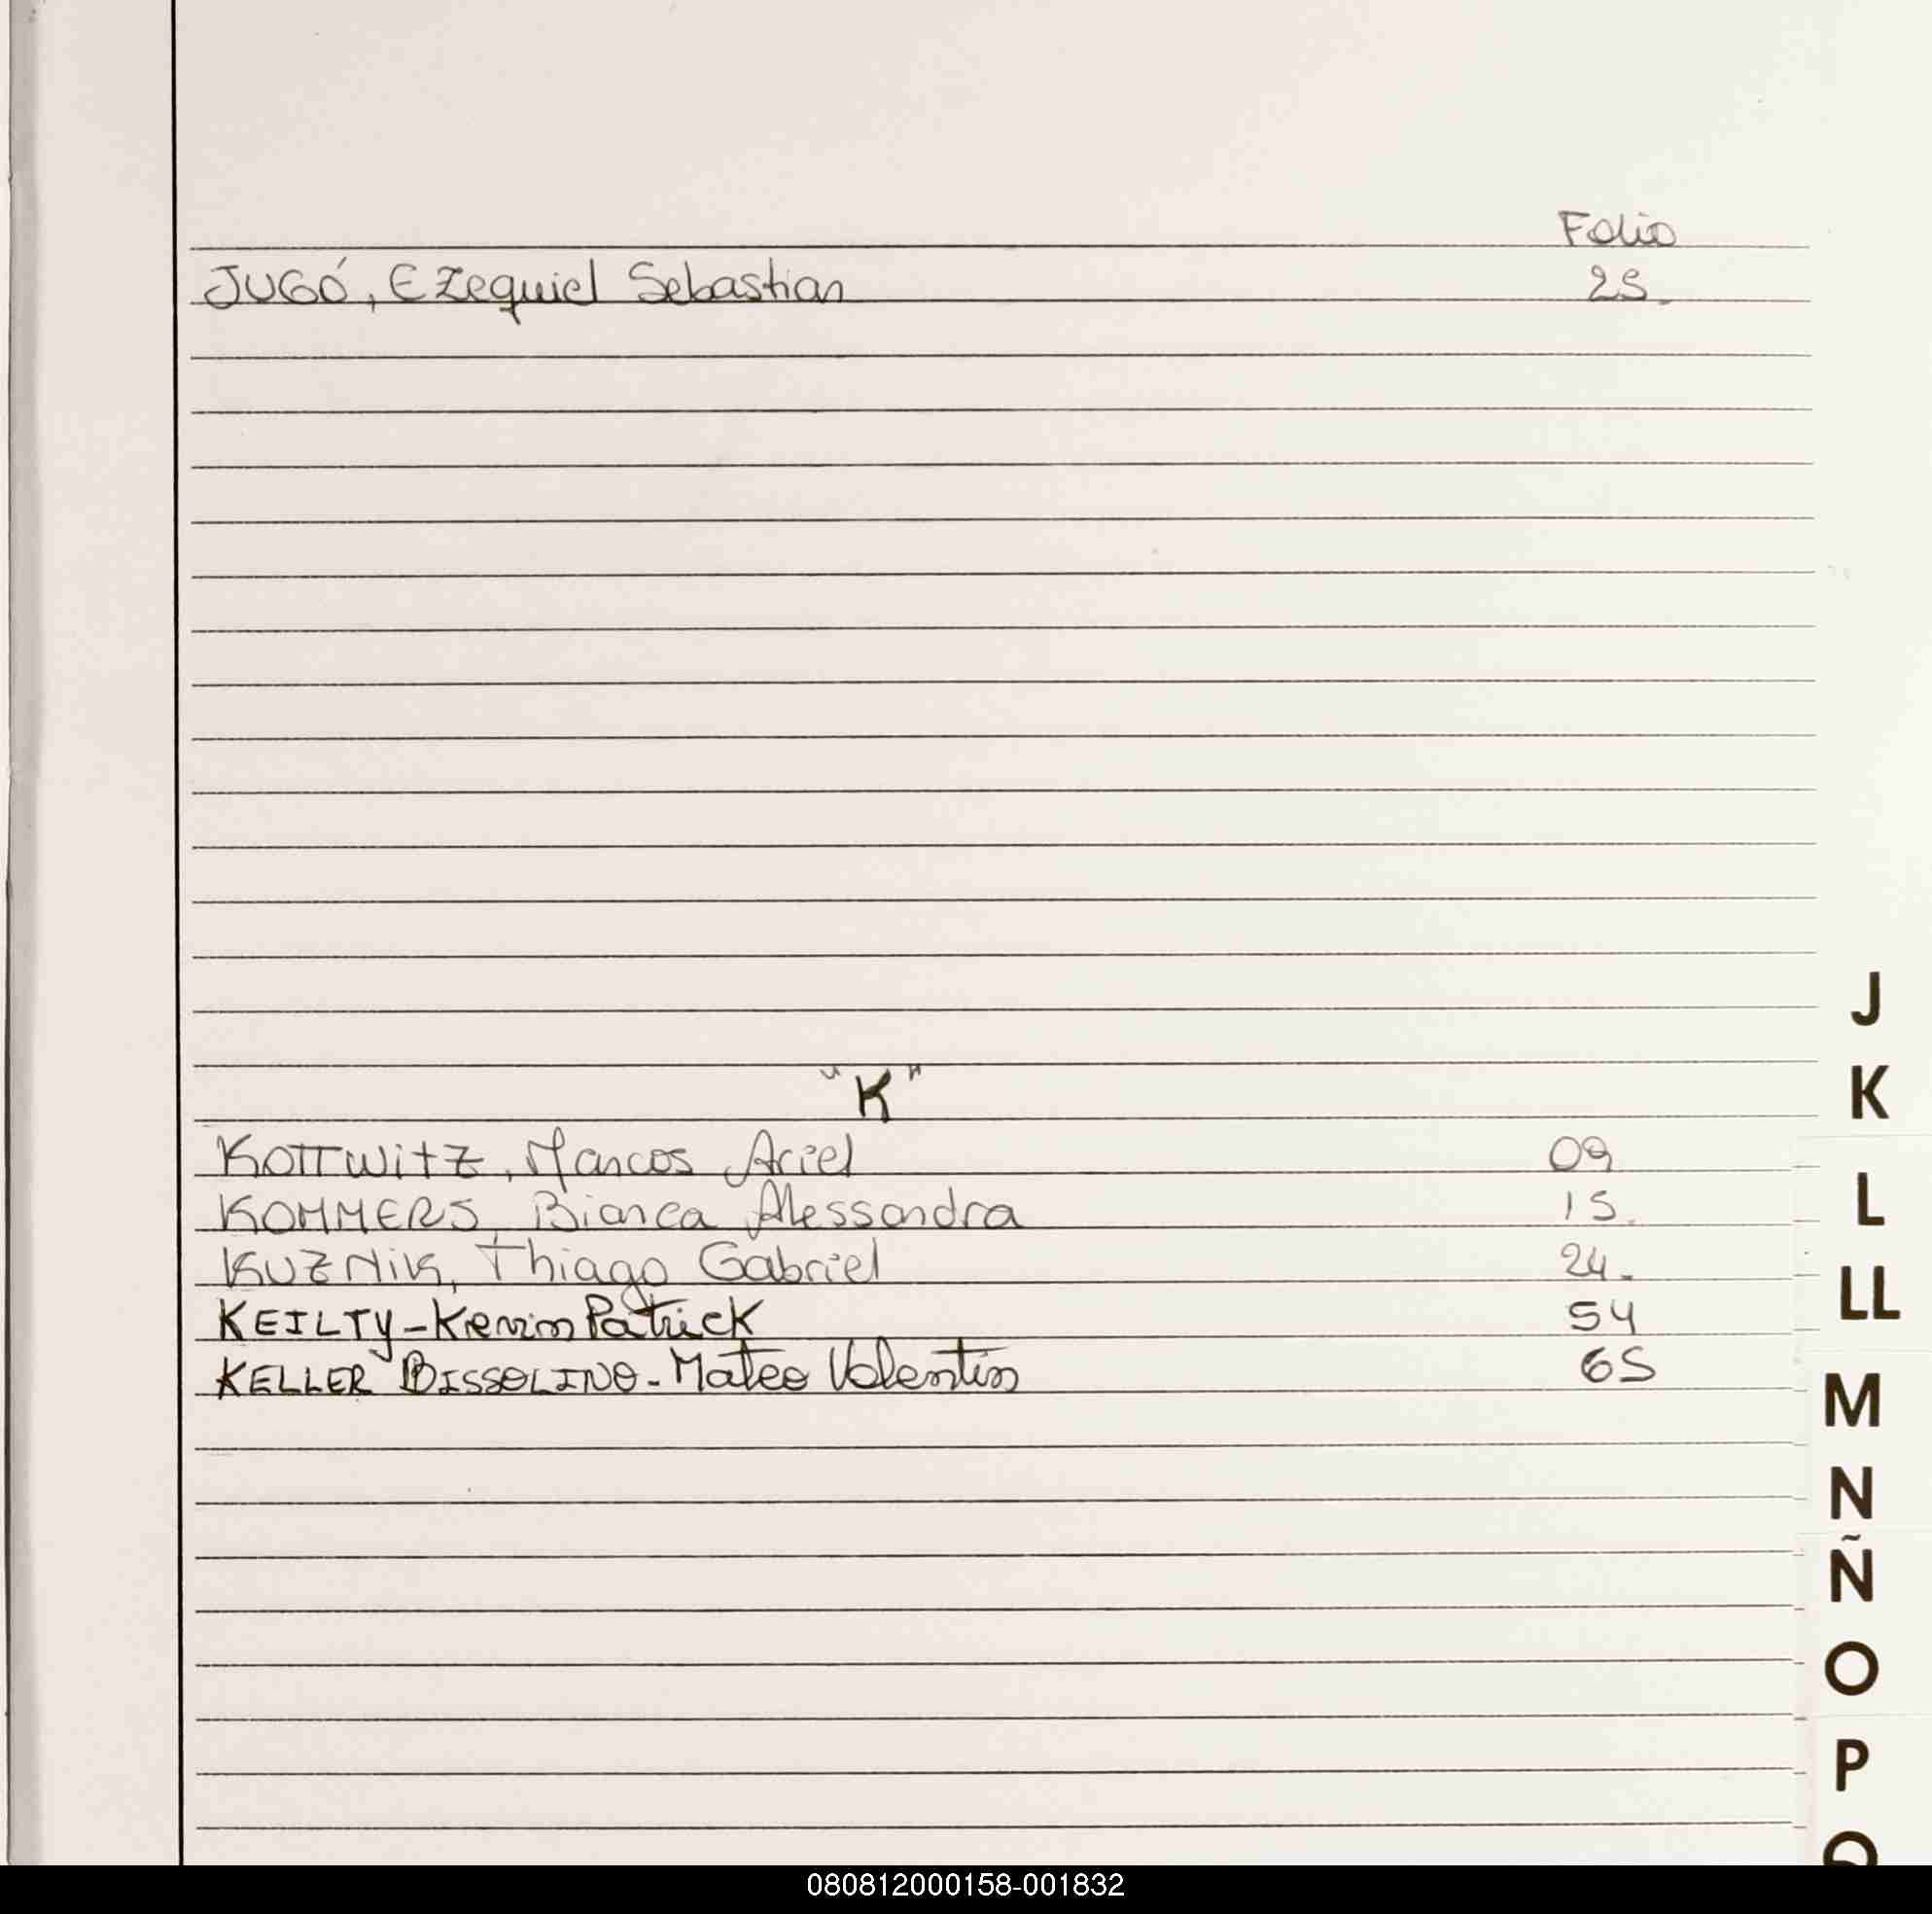 Folio
JUGÓ, Ezequiel Sebastian 25.
"K"
KOTTWITZ, Marcos Ariel 09
KOMMERS, Bianca Alessandra 15.
KUZNIK, Thiago Gabriel 24.
KEILTY - Kevin Patrick 54
KELLER BISSOLINO - Mateo Valentin 65
J
K
L
LL
M
N
Ñ
O
P
Q
080812000158-001832